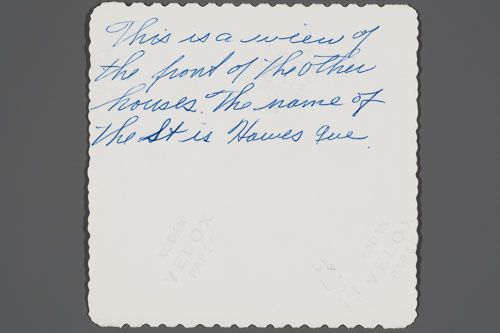 This is a view of
the front of the other
houses. The name of
the St is Hawes Ave.
KODAK
VELOX
PAPER
KODAK
VELOX
PAPER